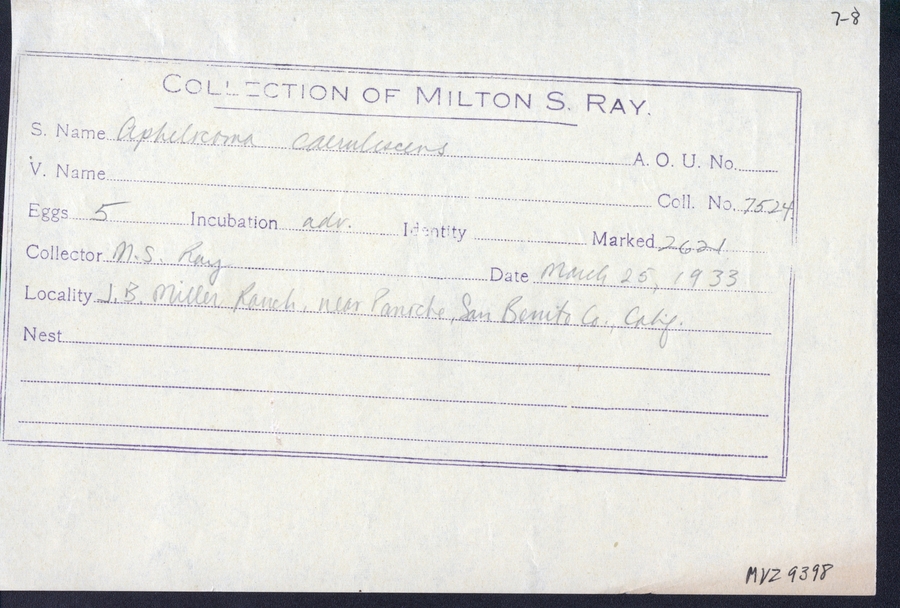 7-8
COLLECTION OF MILTON S. RAY.
S. Name Aphelocoma caerulescens A. O. U. No.
V. Name Coll. No. 7524
Eggs 5 Incubation adv. Identity Marked 2621
Collector M.S. Ray Date March 25, 1933
Locality J.B. Miller Ranch, near Panoche, San Benito Co., Calif.
Nest
MVZ 9398